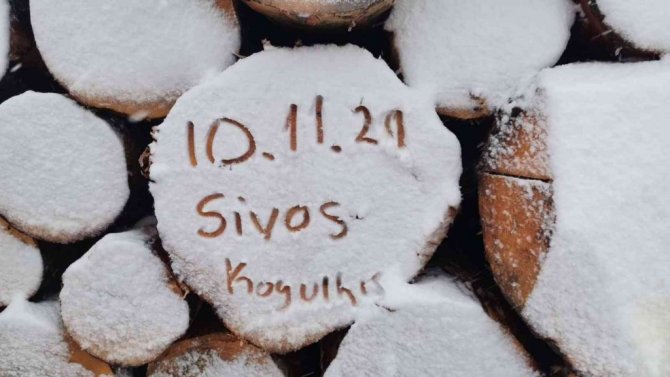 10.11.21
Sivos
Kogulhis